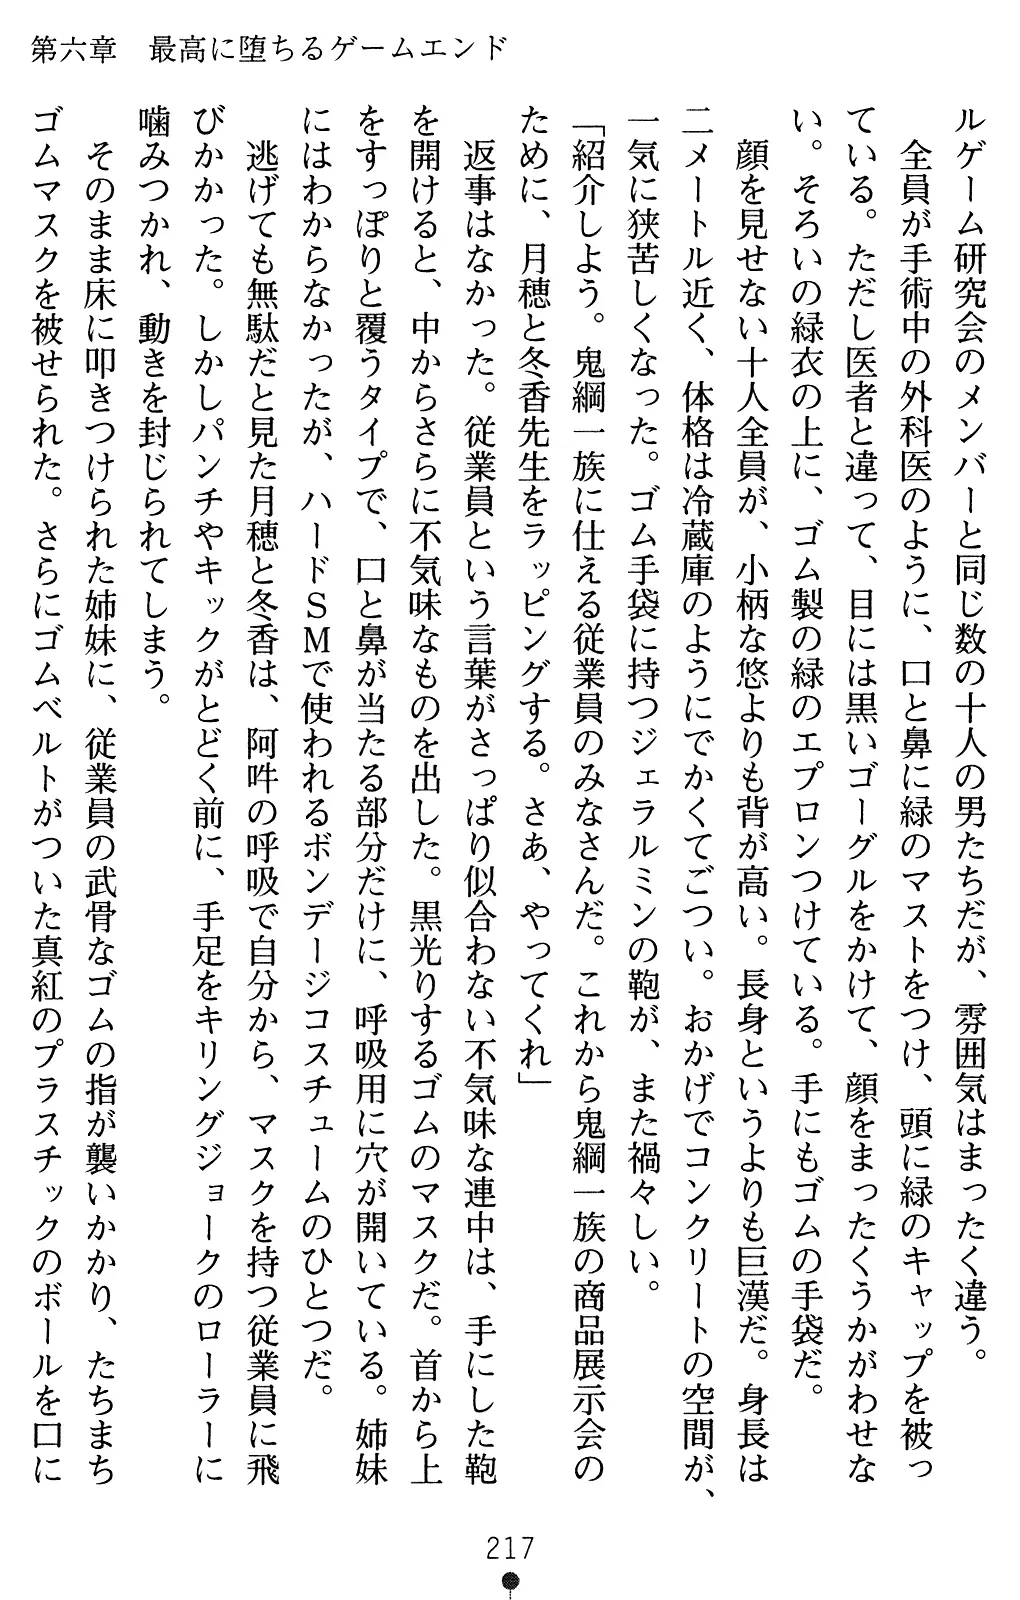 第六章　最高に堕ちるゲームエンド
ルゲーム研究会のメンバーと同じ数の十人の男たちだが、雰囲気はまったく違う。
　全員が手術中の外科医のように、口と鼻に緑のマストをつけ、頭に緑のキャップを被っ
ている。ただし医者と違って、目には黒いゴーグルをかけて、顔をまったくうかがわせな
い。そろいの緑衣の上に、ゴム製の緑のエプロンつけている。手にもゴムの手袋だ。
　顔を見せない十人全員が、小柄な悠よりも背が高い。長身というよりも巨漢だ。身長は
二メートル近く、体格は冷蔵庫のようにでかくてごつい。おかげでコンクリートの空間が、
一気に狭苦しくなった。ゴム手袋に持つジェラルミンの鞄が、また禍々しい。
「紹介しよう。鬼綱一族に仕える従業員のみなさんだ。これから鬼綱一族の商品展示会の
ために、月穂と冬香先生をラッピングする。さあ、やってくれ」
　返事はなかった。従業員という言葉がさっぱり似合わない不気味な連中は、手にした鞄
を開けると、中からさらに不気味なものを出した。黒光りするゴムのマスクだ。首から上
をすっぽりと覆うタイプで、口と鼻が当たる部分だけに、呼吸用に穴が開いている。姉妹
にはわからなかったが、ハードＳＭで使われるボンデージコスチュームのひとつだ。
　逃げても無駄だと見た月穂と冬香は、阿吽の呼吸で自分から、マスクを持つ従業員に飛
びかかった。しかしパンチやキックがとどく前に、手足をキリングジョークのローラーに
噛みつかれ、動きを封じられてしまう。
　そのまま床に叩きつけられた姉妹に、従業員の武骨なゴムの指が襲いかかり、たちまち
ゴムマスクを被せられた。さらにゴムベルトがついた真紅のプラスチックのボールを口に
217